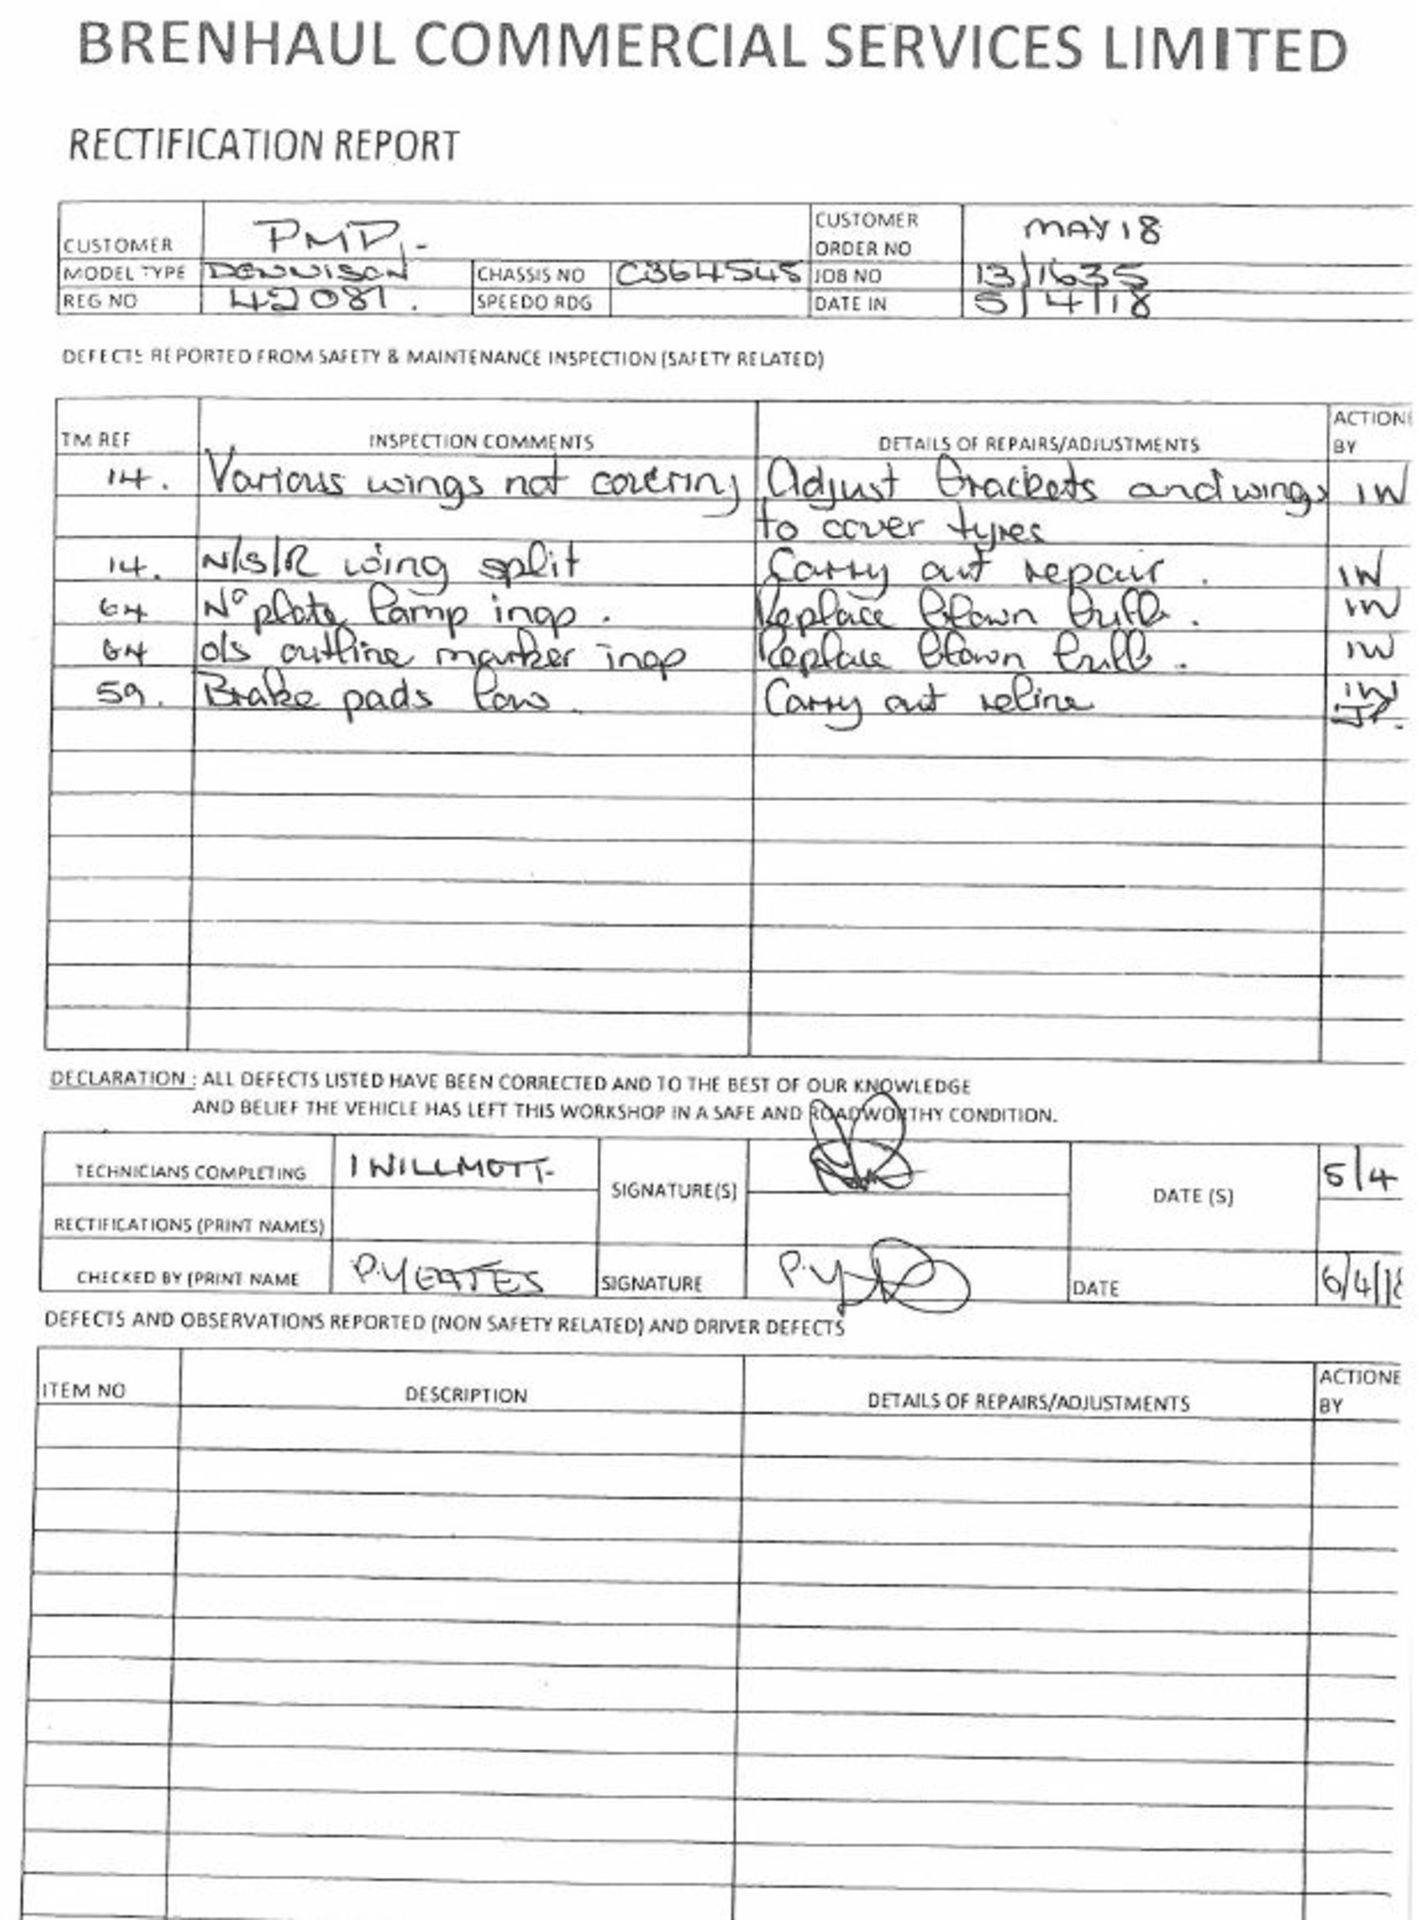 BRENHAUL COMMERCIAL SERVICES LIMITED
RECTIFICATION REPORT
CUSTOMER PMP. CUSTOMER ORDER NO MAY 18
MODEL TYPE DENNISON CHASSIS NO C364545 JOB NO 13/1635
REG NO 42081. SPEEDO RDG DATE IN 5/4/18
DEFECTS REPORTED FROM SAFETY & MAINTENANCE INSPECTION (SAFETY RELATED)
TM REF INSPECTION COMMENTS DETAILS OF REPAIRS/ADJUSTMENTS ACTIONE BY
14. Various wings not covering Adjust brackets and wings IW
to cover tyres
14. N/S/R wing split Carry out repair. IW
64 No plate lamp inop. Replace blown bulb. IW
64 o/s outline marker inop Replace blown bulb. IW
59. Brake pads low. Carry out reline IW
JP.
DECLARATION : ALL DEFECTS LISTED HAVE BEEN CORRECTED AND TO THE BEST OF OUR KNOWLEDGE
AND BELIEF THE VEHICLE HAS LEFT THIS WORKSHOP IN A SAFE AND ROADWORTHY CONDITION.
TECHNICIANS COMPLETING I WILLMOTT SIGNATURE(S) DATE (S) 5/4
RECTIFICATIONS (PRINT NAMES)
CHECKED BY (PRINT NAME P.YEATES SIGNATURE P.Y DATE 6/4/18
DEFECTS AND OBSERVATIONS REPORTED (NON SAFETY RELATED) AND DRIVER DEFECTS
ITEM NO DESCRIPTION DETAILS OF REPAIRS/ADJUSTMENTS ACTIONE BY